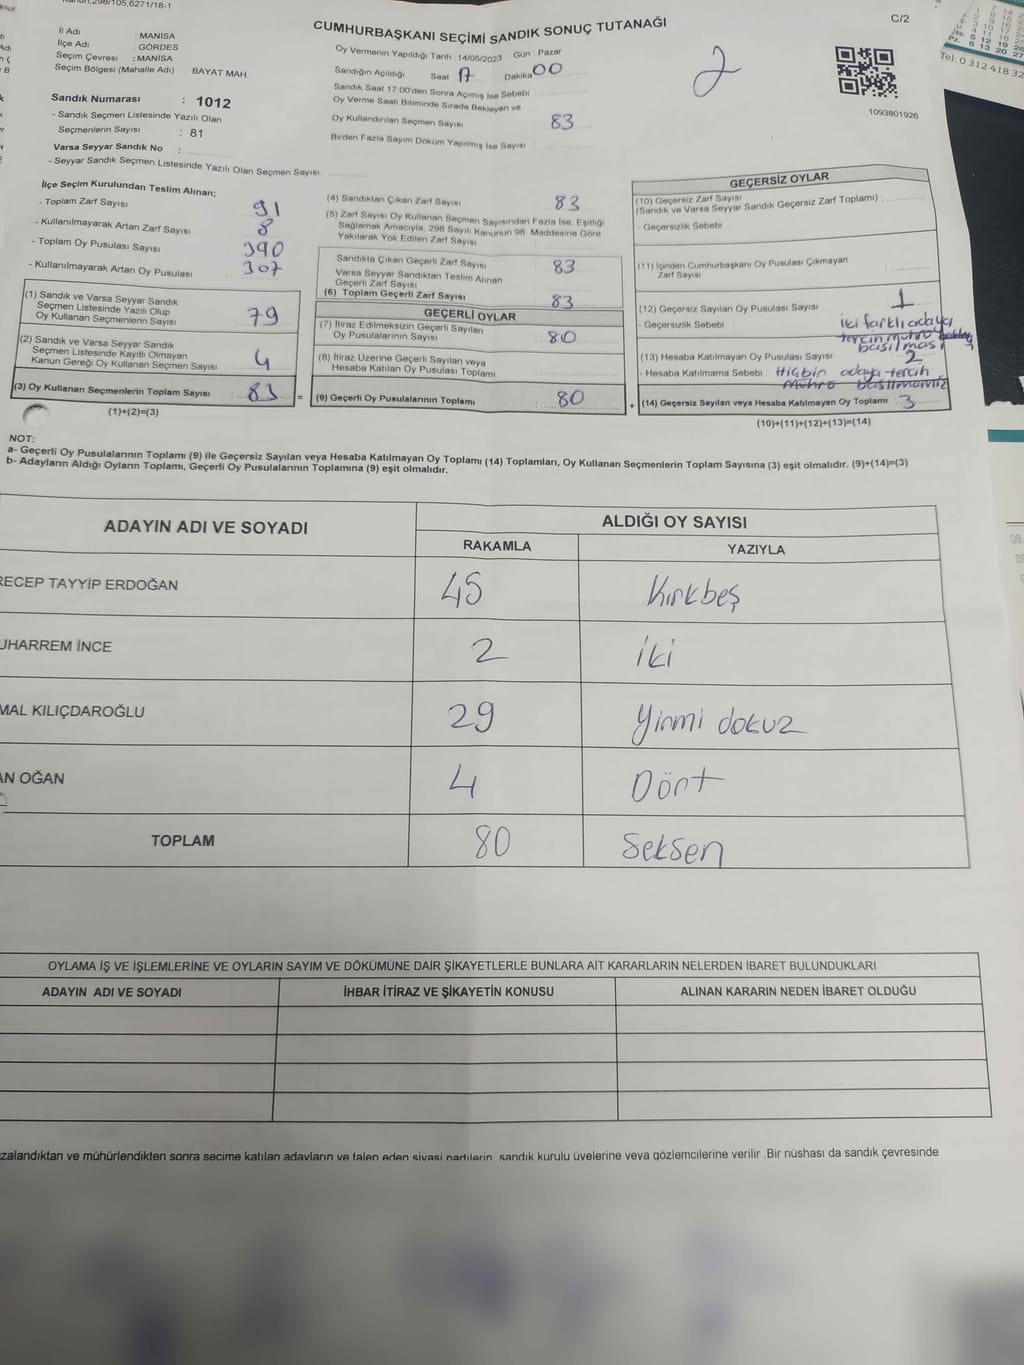 298/105,6271/18-1
CUMHURBAŞKANI SEÇİMİ SANDIK SONUÇ TUTANAĞI
C/2
İl Adı : MANİSA
İlçe Adı : GÖRDES
Seçim Çevresi : MANİSA
Seçim Bölgesi (Mahalle Adı) : BAYAT MAH.
Sandık Numarası : 1012
- Sandık Seçmen Listesinde Yazılı Olan
Seçmenlerin Sayısı : 81
Varsa Seyyar Sandık No :
- Seyyar Sandık Seçmen Listesinde Yazılı Olan Seçmen Sayısı
Oy Vermenin Yapıldığı Tarih : 14/05/2023 Gün : Pazar
Sandığın Açıldığı Saat 17 Dakika 00
Sandık Saat 17:00'den Sonra Açımış İse Sebebi
Oy Verme Saati Bitiminde Sırada Bekleyen ve
Oy Kullandırılan Seçmen Sayısı 83
Birden Fazla Sayım Döküm Yapılmış İse Sayısı
2
1093801926
Tel: 0 312 418 32
İlçe Seçim Kurulundan Teslim Alınan;
- Toplam Zarf Sayısı 91
- Kullanılmayarak Artan Zarf Sayısı 8
- Toplam Oy Pusulası Sayısı 390
- Kullanılmayarak Artan Oy Pusulası 307
(1) Sandık ve Varsa Seyyar Sandık
Seçmen Listesinde Yazılı Olup
Oy Kullanan Seçmenlerin Sayısı 79
(2) Sandık ve Varsa Seyyar Sandık
Seçmen Listesinde Kayıtlı Olmayan
Kanun Gereği Oy Kullanan Seçmen Sayısı 4
(3) Oy Kullanan Seçmenlerin Toplam Sayısı 83 =
(1)+(2)=(3)
(4) Sandıktan Çıkan Zarf Sayısı 83
(5) Zarf Sayısı Oy Kullanan Seçmen Sayısından Fazla İse, Eşitliği
Sağlamak Amacıyla, 298 Sayılı Kanunun 98. Maddesine Göre
Yakılarak Yok Edilen Zarf Sayısı
Sandıkta Çıkan Geçerli Zarf Sayısı 83
Varsa Seyyar Sandıktan Teslim Alınan
Geçerli Zarf Sayısı
(6) Toplam Geçerli Zarf Sayısı 83
GEÇERLİ OYLAR
(7) İtiraz Edilmeksizin Geçerli Sayılan
Oy Pusulalarının Sayısı 80
(8) İtiraz Üzerine Geçerli Sayılan veya
Hesaba Katılan Oy Pusulalarının Toplamı
(9) Geçerli Oy Pusulalarının Toplamı 80 +
GEÇERSİZ OYLAR
(10) Geçersiz Zarf Sayısı
(Sandık ve Varsa Seyyar Sandık Geçersiz Zarf Toplamı) :
- Geçersizlik Sebebi
(11) İçinden Cumhurbaşkanı Oy Pusulası Çıkmayan
Zarf Sayısı :
(12) Geçersiz Sayılan Oy Pusulası Sayısı 1
- Geçersizlik Sebebi : iki farklı adaya
basılması
(13) Hesaba Katılmayan Oy Pusulası Sayısı 2
- Hesaba Katılmama Sebebi : Hiçbir adaya tercih
Mührü
(14) Geçersiz Sayılan veya Hesaba Katılmayan Oy Toplamı : 3
(10)+(11)+(12)+(13)=(14)
NOT:
a- Geçerli Oy Pusulalarının Toplamı (9) ile Geçersiz Sayılan veya Hesaba Katılmayan Oy Toplamı (14) Toplamları, Oy Kullanan Seçmenlerin Toplam Sayısına (3) eşit olmalıdır. (9)+(14)=(3)
b- Adayların Aldığı Oyların Toplamı, Geçerli Oy Pusulalarının Toplamına (9) eşit olmalıdır.
ADAYIN ADI VE SOYADI ALDIĞI OY SAYISI
RAKAMLA YAZIYLA
RECEP TAYYİP ERDOĞAN 45 Kırkbeş
UHARREM İNCE 2 iki
MAL KILIÇDAROĞLU 29 Yirmi dokuz
AN OĞAN 4 Dört
TOPLAM 80 Seksen
OYLAMA İŞ VE İŞLEMLERİNE VE OYLARIN SAYIM VE DÖKÜMÜNE DAİR ŞİKAYETLERLE BUNLARA AİT KARARLARIN NELERDEN İBARET BULUNDUKLARI
ADAYIN ADI VE SOYADI İHBAR İTİRAZ VE ŞİKAYETİN KONUSU ALINAN KARARIN NEDEN İBARET OLDUĞU
zalandıktan ve mühürlendikten sonra seçime katılan adayların ve talep eden siyasi partilerin, sandık kurulu üyelerine veya gözlemcilerine verilir .Bir nüshası da sandık çevresinde